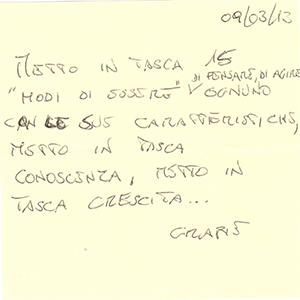 09/03/13
METTO IN TASCA 15
"MODI DI ESSERE" DI PENSARE, DI AGIRE OGNUNO
CON LE SUE CARATTERISTICHE,
METTO IN TASCA
CONOSCENZA, METTO IN
TASCA CRESCITA...
GRAZIE